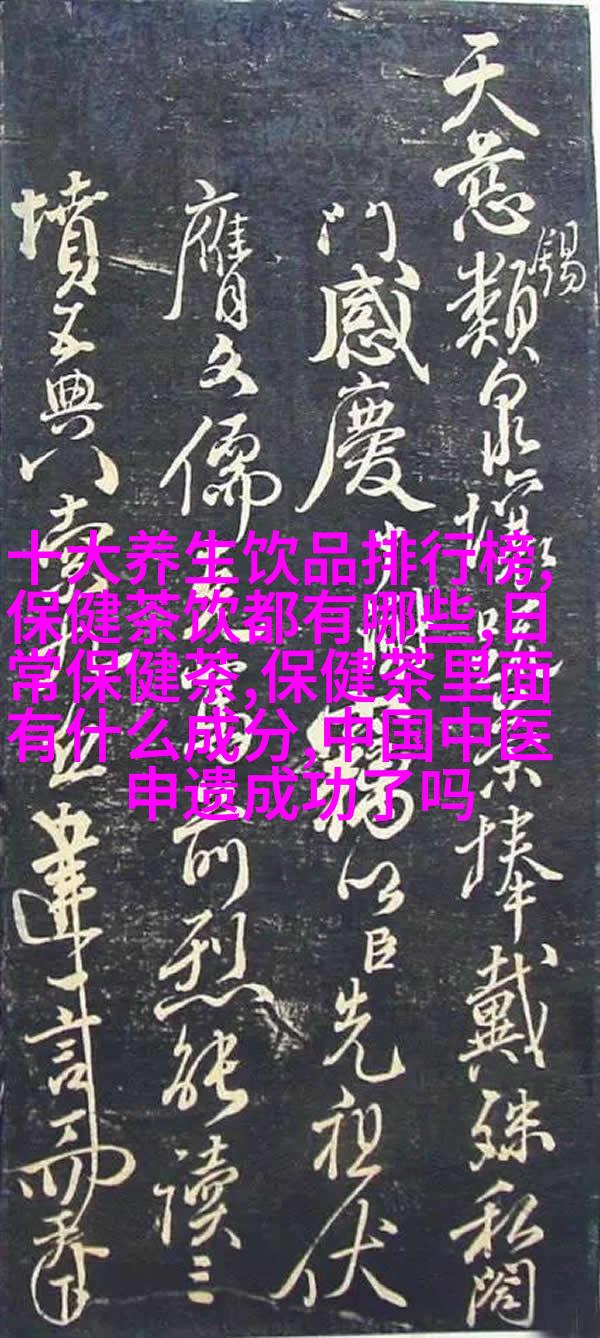 天慈類
錫
捧戴殊私閤
門感慶
以臣先祖伏
膺文儒
前烈能讀三
墳五典八
丘
言
十大养生饮品排行榜,
保健茶饮都有哪些,日
常保健茶,保健茶里面
有什么成分,中国中医
申遗成功了吗